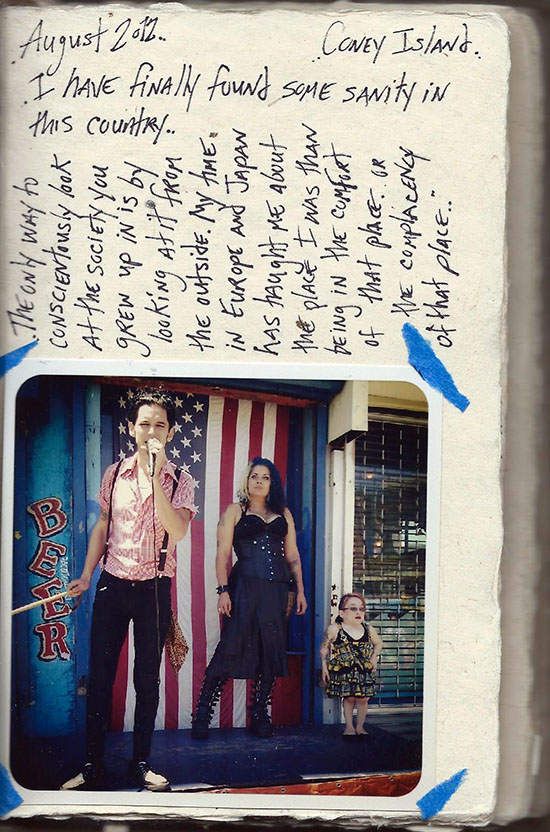 August 2012.. Coney Island..
I have finally found some sanity in
this country..
..The only way to
conscientously look
at the society you
grew up in is by
looking at it from
the outside. My time.
in Europe and Japan
has taught me about
the place I was than
being in the comfort
of that place. or
the complacency
of that place..
BEER